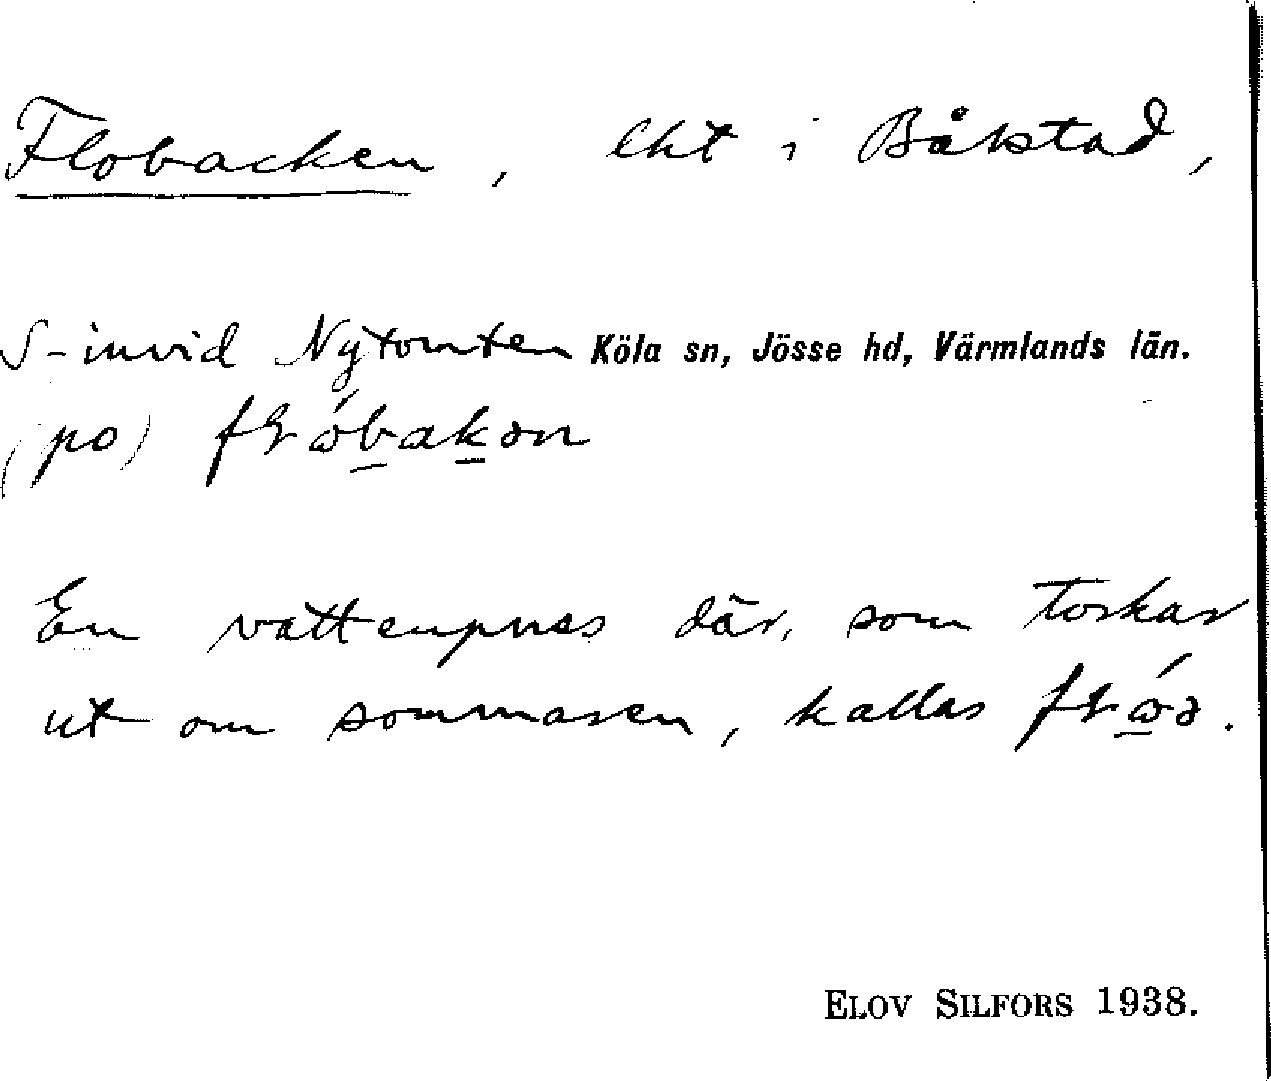 Flobacken, lht i Båstad,
S-invid Nytomten Köla sn, Jösse hd, Värmlands län.
(po)
En vattenpuss där, som torkar
ut om sommaren, kallas
ELOV SILFORS 1938.